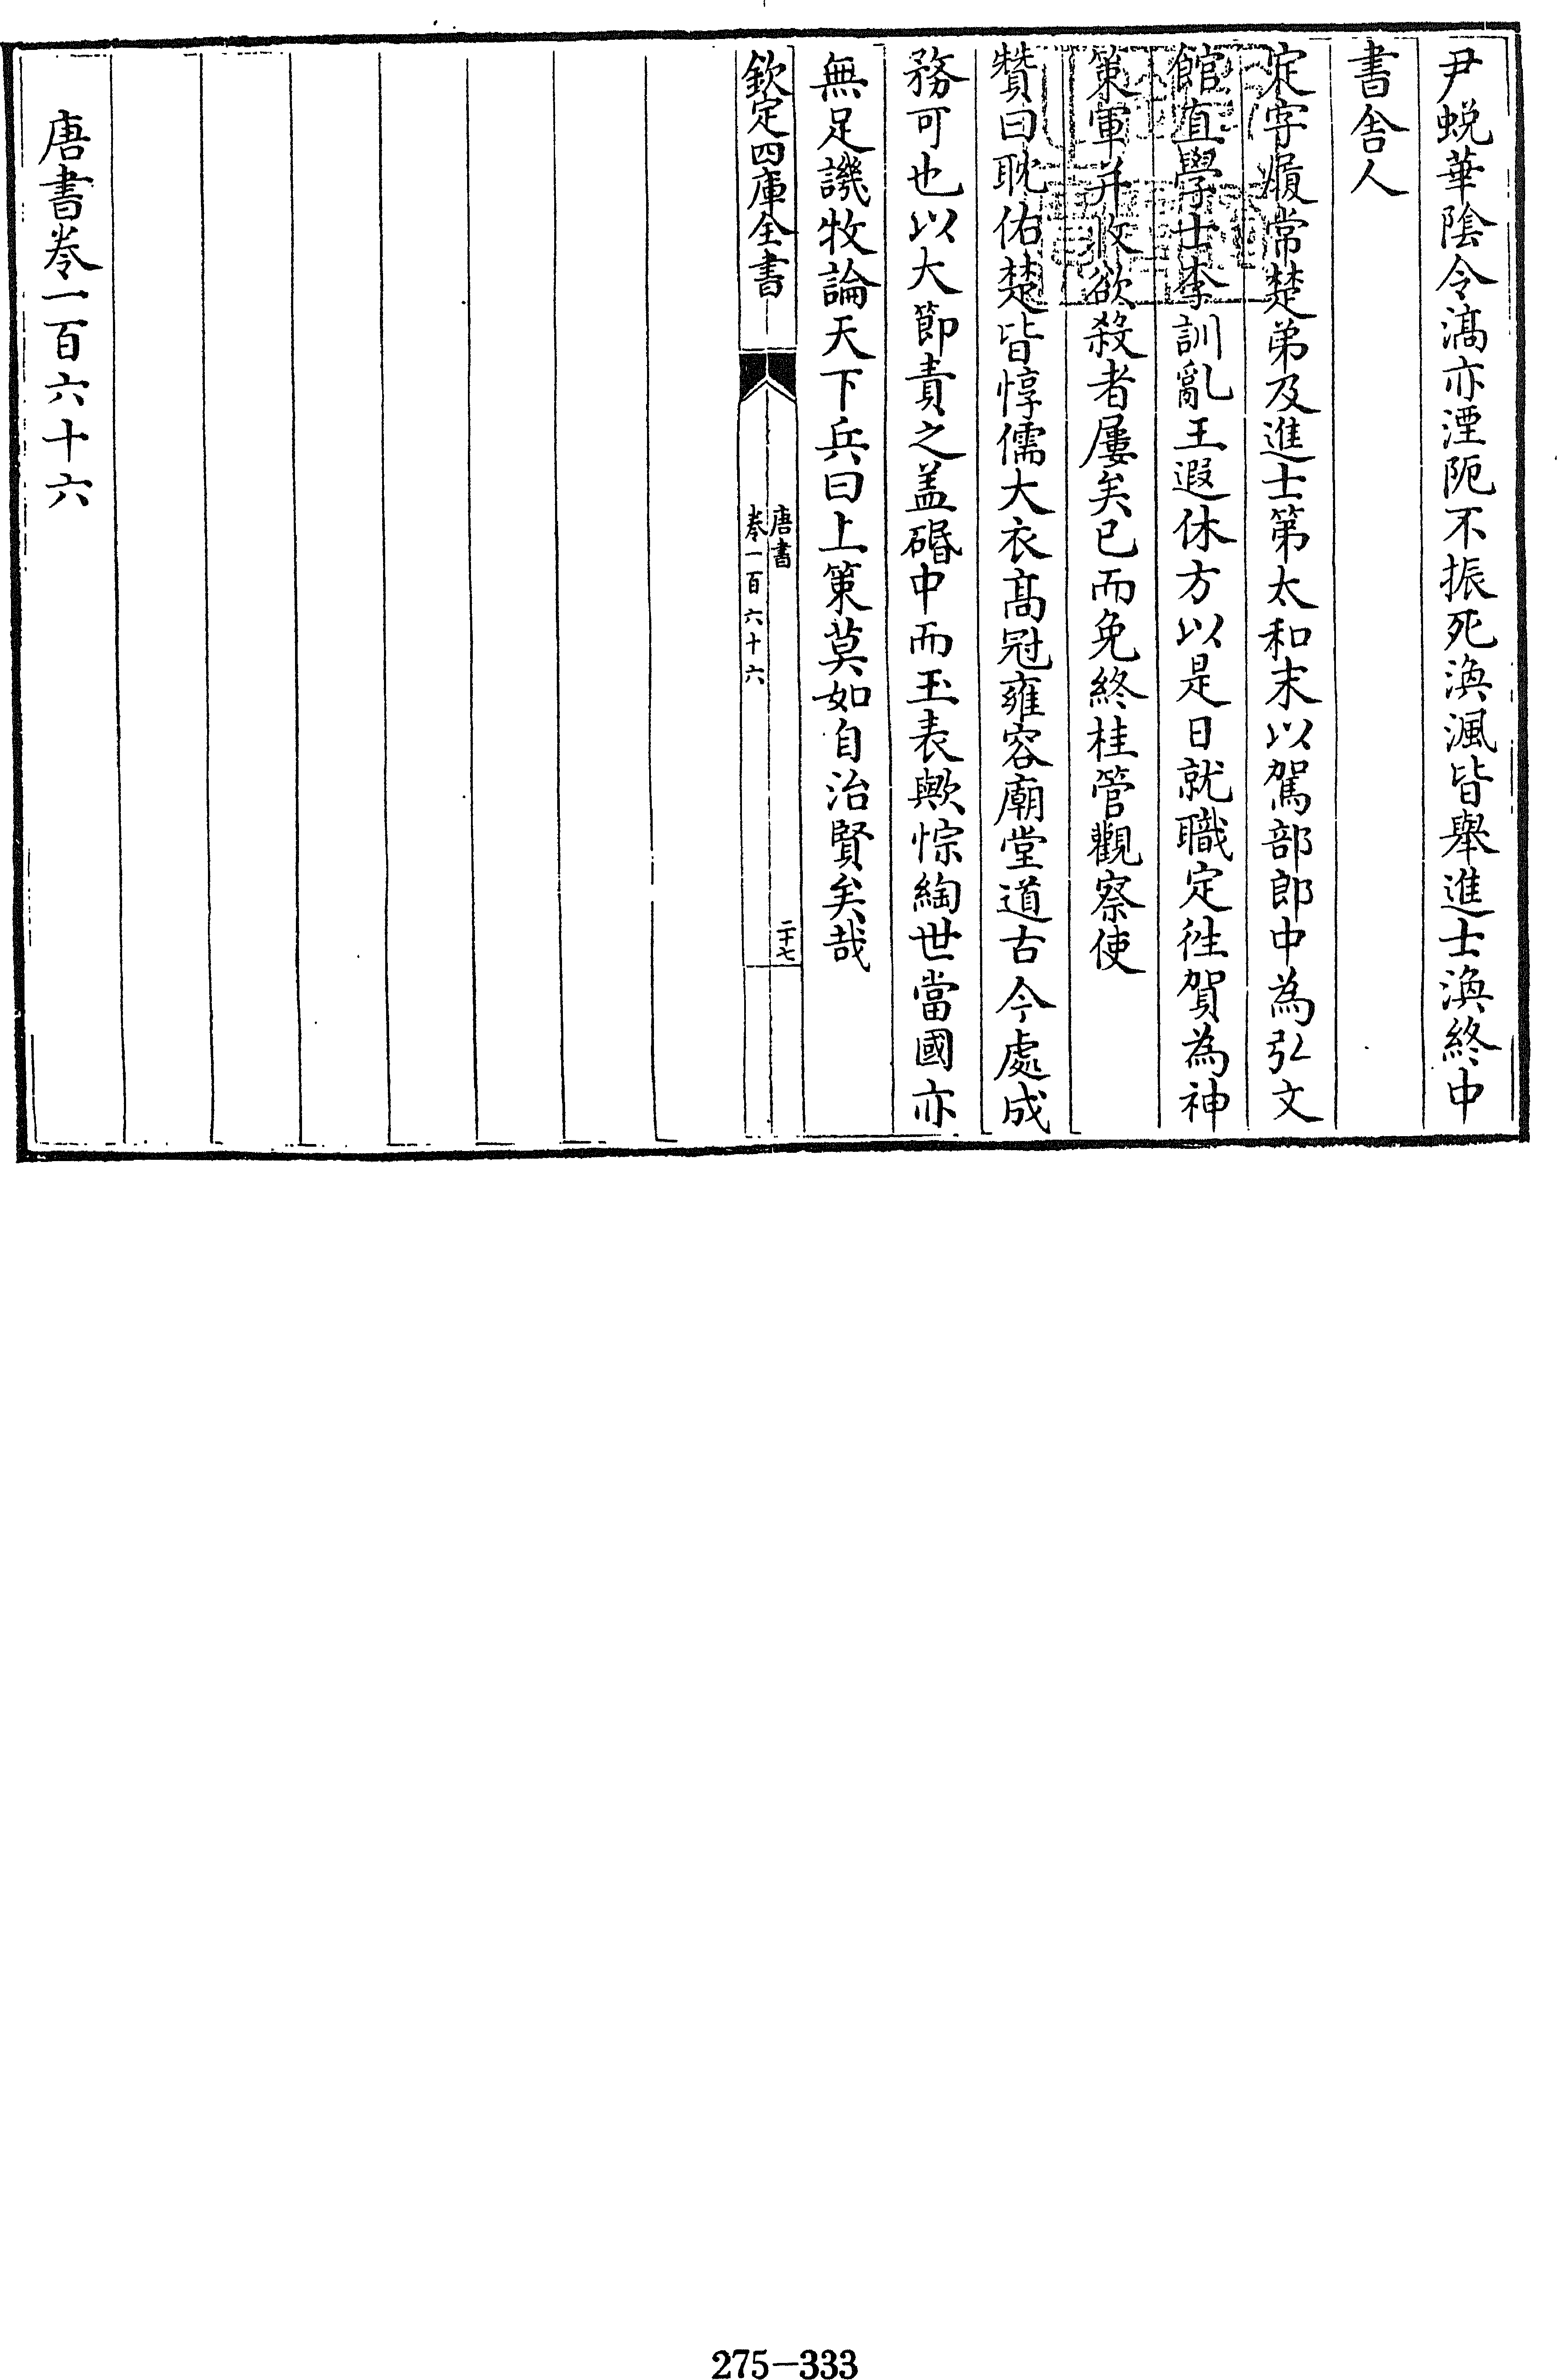 尹蛻華陰令滈亦湮阨不振死渙渢皆舉進士渙終中
書舍人
定字履常楚弟及進士第太和末以駕部郎中為弘文
館直學士李訓亂王遐休方以是日就職定徃賀為神
策軍并收欲殺者屢矣已而免終桂管觀察使
贊曰耽佑楚皆惇儒大衣髙冠雍容廟堂道古今處成
務可也以大節責之盖䃉中而玉表歟悰綯世當國亦
無足譏牧論天下兵曰上策莫如自治賢矣哉
欽定四庫全書
唐書
卷一百六十六
二十七
唐書卷一百六十六
275-333